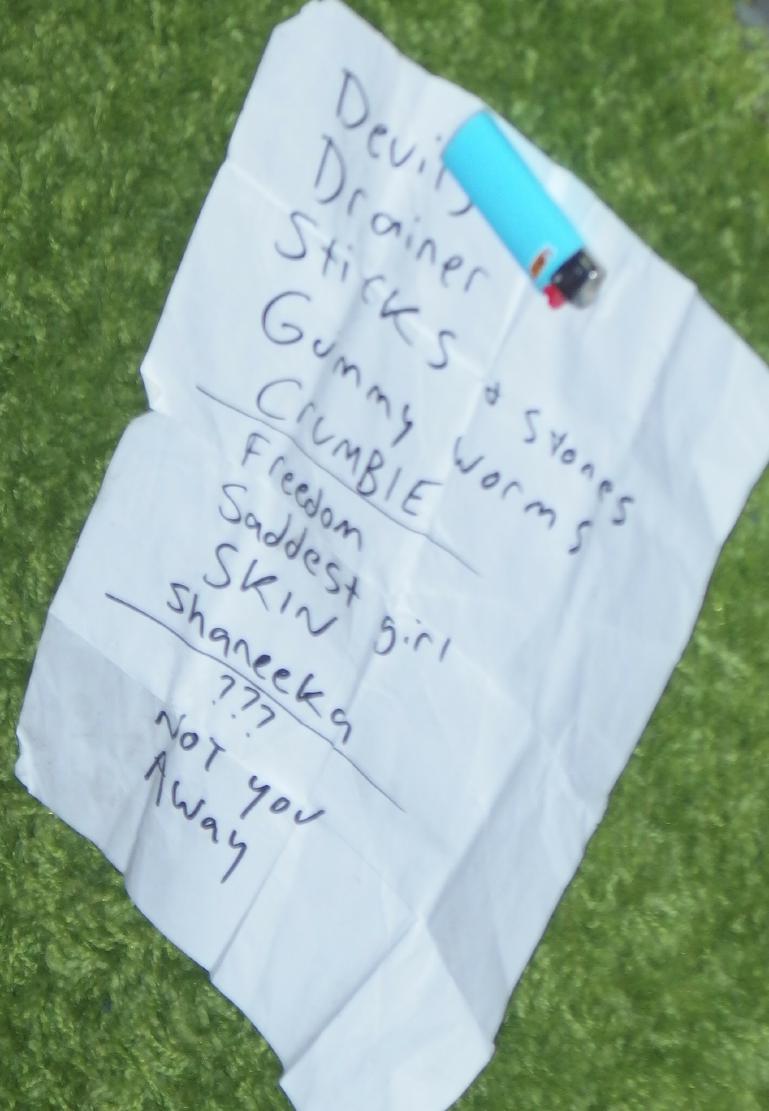 Devils
Drainer
Sticks + Stones
Gummy worms
CRUMBlE
Freedom
Saddest girl
SKIN
shaneeka
???
NOT you
AWay